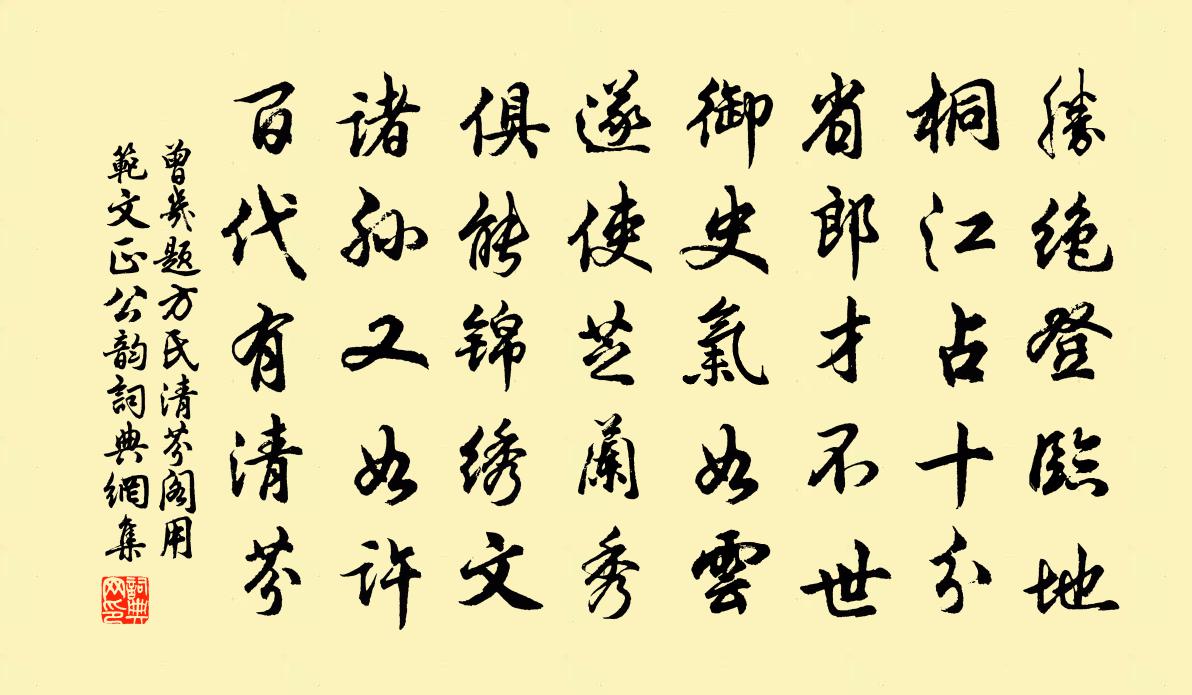 勝絶登臨地
桐江占十分
省郎才不世
御史氣如雲
遂使芝蘭秀
俱能锦绣文
諸孙又如许
百代有清芬
曾幾题方氏清芬阁用
範文正公韵詞典網集
詞典网印